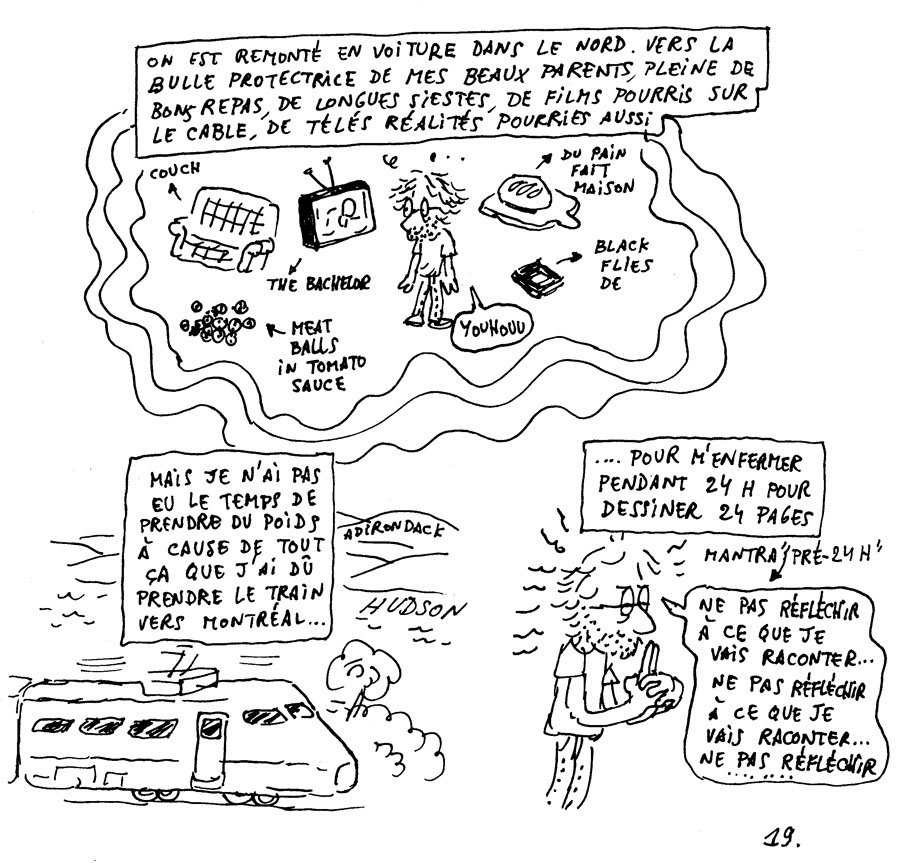 ON EST REMONTÉ EN VOITURE DANS LE NORD. VERS LA
BULLE PROTECTRICE DE MES BEAUX PARENTS, PLEINE DE
BONS REPAS, DE LONGUES SIESTES, DE FILMS POURRIS SUR
LE CABLE, DE TÉLÉS RÉALITÉS POURRIES AUSSI
COUCH
THE BACHELOR
DU PAIN
FAIT
MAISON
BLACK
FLIES
DE
MEAT
BALLS
IN TOMATO
SAUCE
YOUHOUU
MAIS JE N'AI PAS
EU LE TEMPS DE
PRENDRE DU POIDS
À CAUSE DE TOUT
ÇA QUE J'AI DÛ
PRENDRE LE TRAIN
VERS MONTRÉAL...
ADIRONDACK
HUDSON
.... POUR M'ENFERMER
PENDANT 24 H POUR
DESSINER 24 PAGES
MANTRA "PRÉ-24H"
NE PAS RÉFLÉCHIR
À CE QUE JE
VAIS RACONTER...
NE PAS RÉFLÉCHIR
À CE QUE JE
VAIS RACONTER...
NE PAS RÉFLÉCHIR
.......
19.